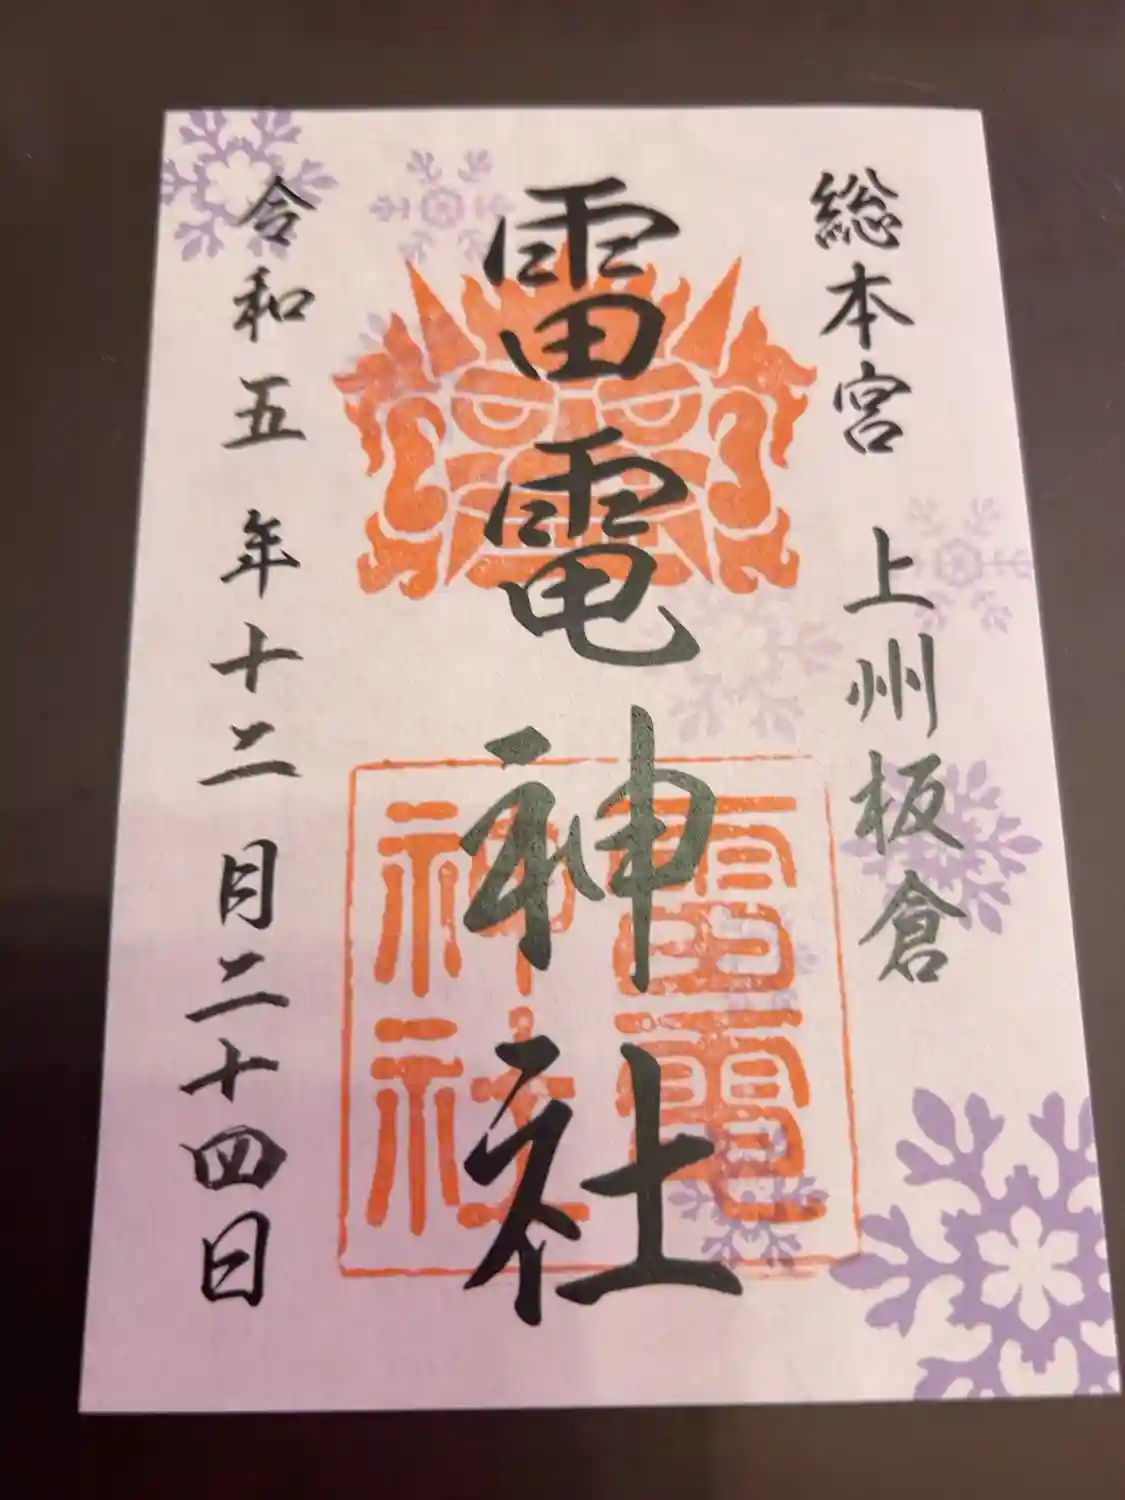 総本宮 上州板倉
雷電神社
雷電
神社
令和五年十二月二十四日